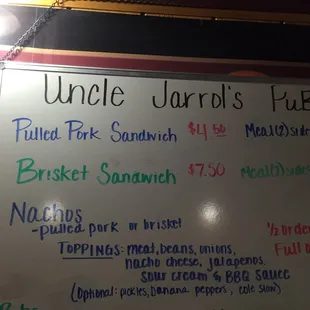 Uncle Jarrol's Pub
Pulled Pork Sandwich $4.50 Meal (2) side
Brisket Sandwich $7.50 Meal (2) side
Nachos
-pulled pork or brisket
1/2 orde
TOPPINGS: meat, beans, onions, Full o
nacho cheese, jalapenos,
sour cream & BBQ sauce
(optional: pickles, banana peppers, cole slaw)